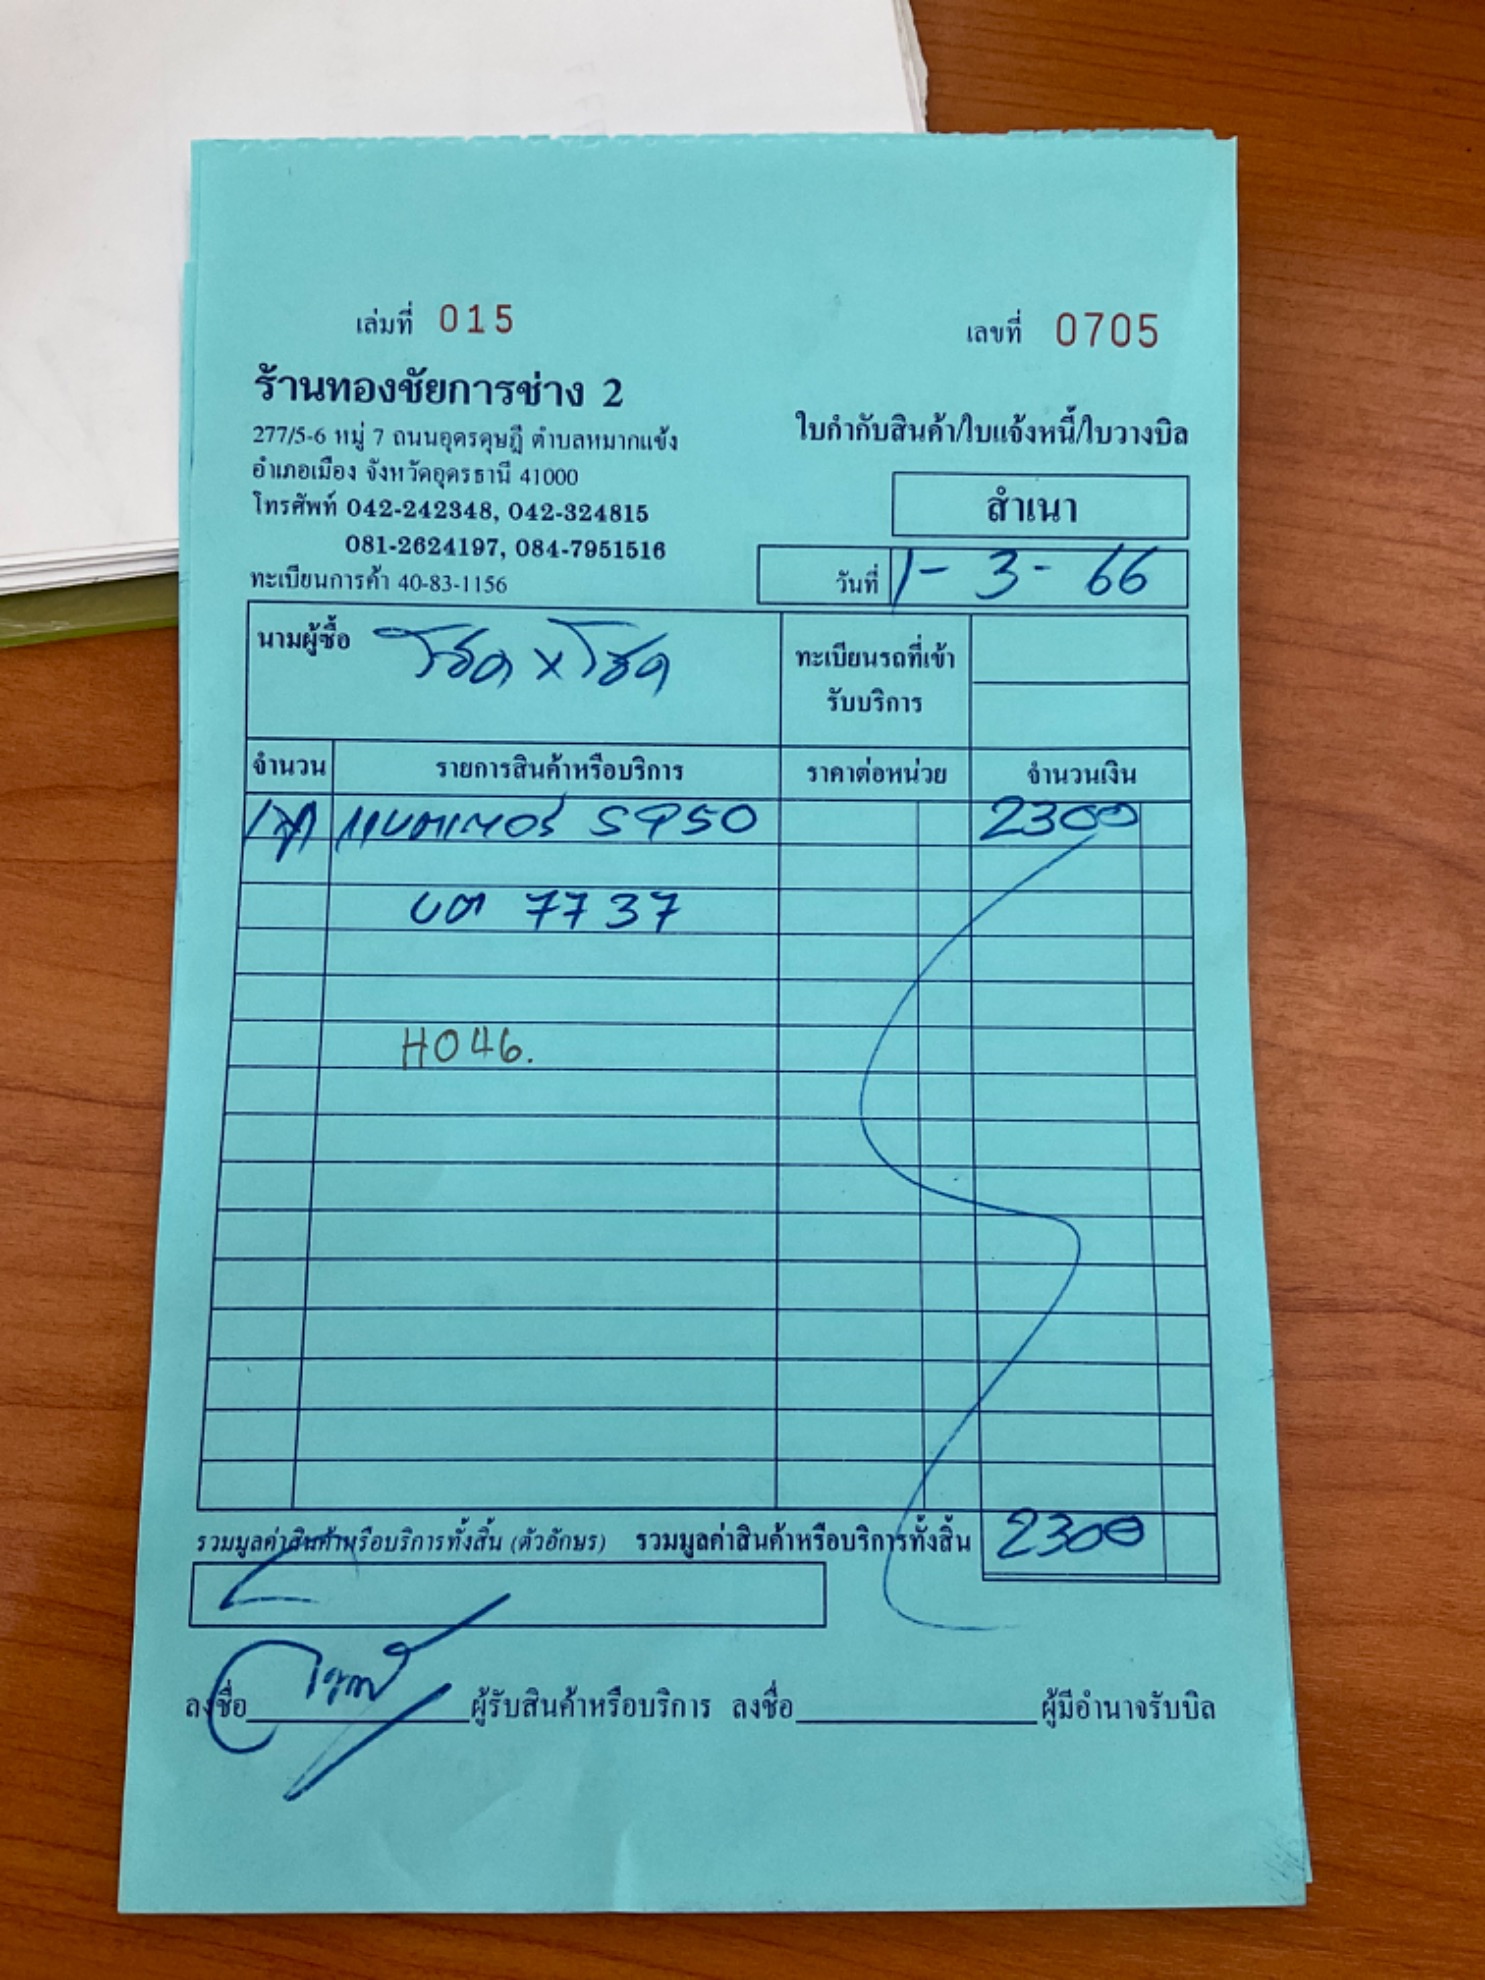 เล่มที่ 015
เลขที่ 0705
ร้านทองชัยการช่าง 2
277/5-6 หมู่ 7 ถนนอุดรดุษฎี ตำบลหมากแข้ง
อำเภอเมือง จังหวัดอุดรธานี 41000
โทรศัพท์ 042-242348, 042-324815
081-2624197, 084-7951516
ทะเบียนการค้า 40-83-1156
ใบกำกับสินค้า/ใบแจ้งหนี้/ใบวางบิล
สำเนา
วันที่ 1-3-66
นามผู้ซื้อ โชค x โชค
ทะเบียนรถที่เข้า
รับบริการ
จำนวน รายการสินค้าหรือบริการ ราคาต่อหน่วย จำนวนเงิน
แบตเตอรี่ 2300
บต 7737
H046.
รวมมูลค่าสินค้าหรือบริการทั้งสิ้น (ตัวอักษร) รวมมูลค่าสินค้าหรือบริการทั้งสิ้น 2300
ลงชื่อ ผู้รับสินค้าหรือบริการ ลงชื่อ ผู้มีอำนาจรับบิล